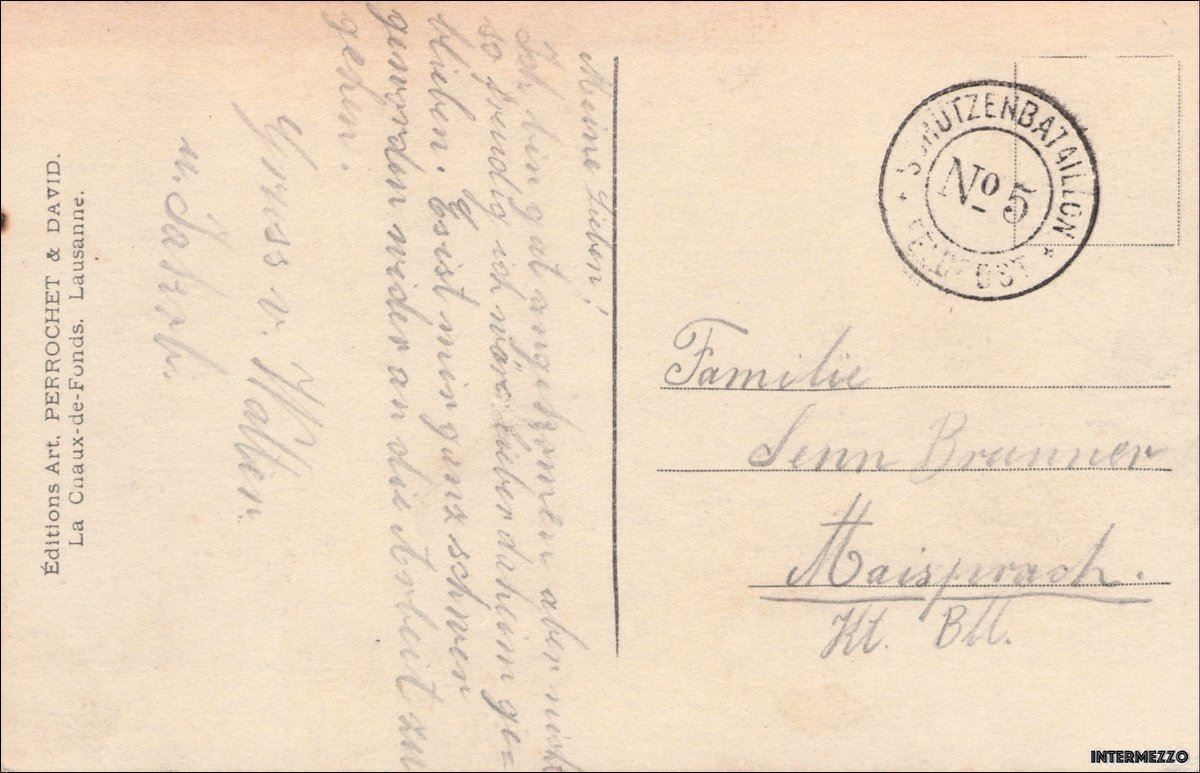 Meine Lieben!
Ich bin gut angekomen aber nicht
so freudig ich wäre lieber daheim ge=
blieben. Es ist mir ganz schwer
geworden wider an die Arbeit zu
gehen.
Gruss v.
u. Jakob.
Éditions Art. PERROCHET & DAVID.
La Chaux-de-Fonds. Lausanne.
SCHUTZENBATAILLON
No 5
* FELDPOST *
Familie
Senn Brunner
Maisprach.
Kt. Bll.
INTERMEZZO